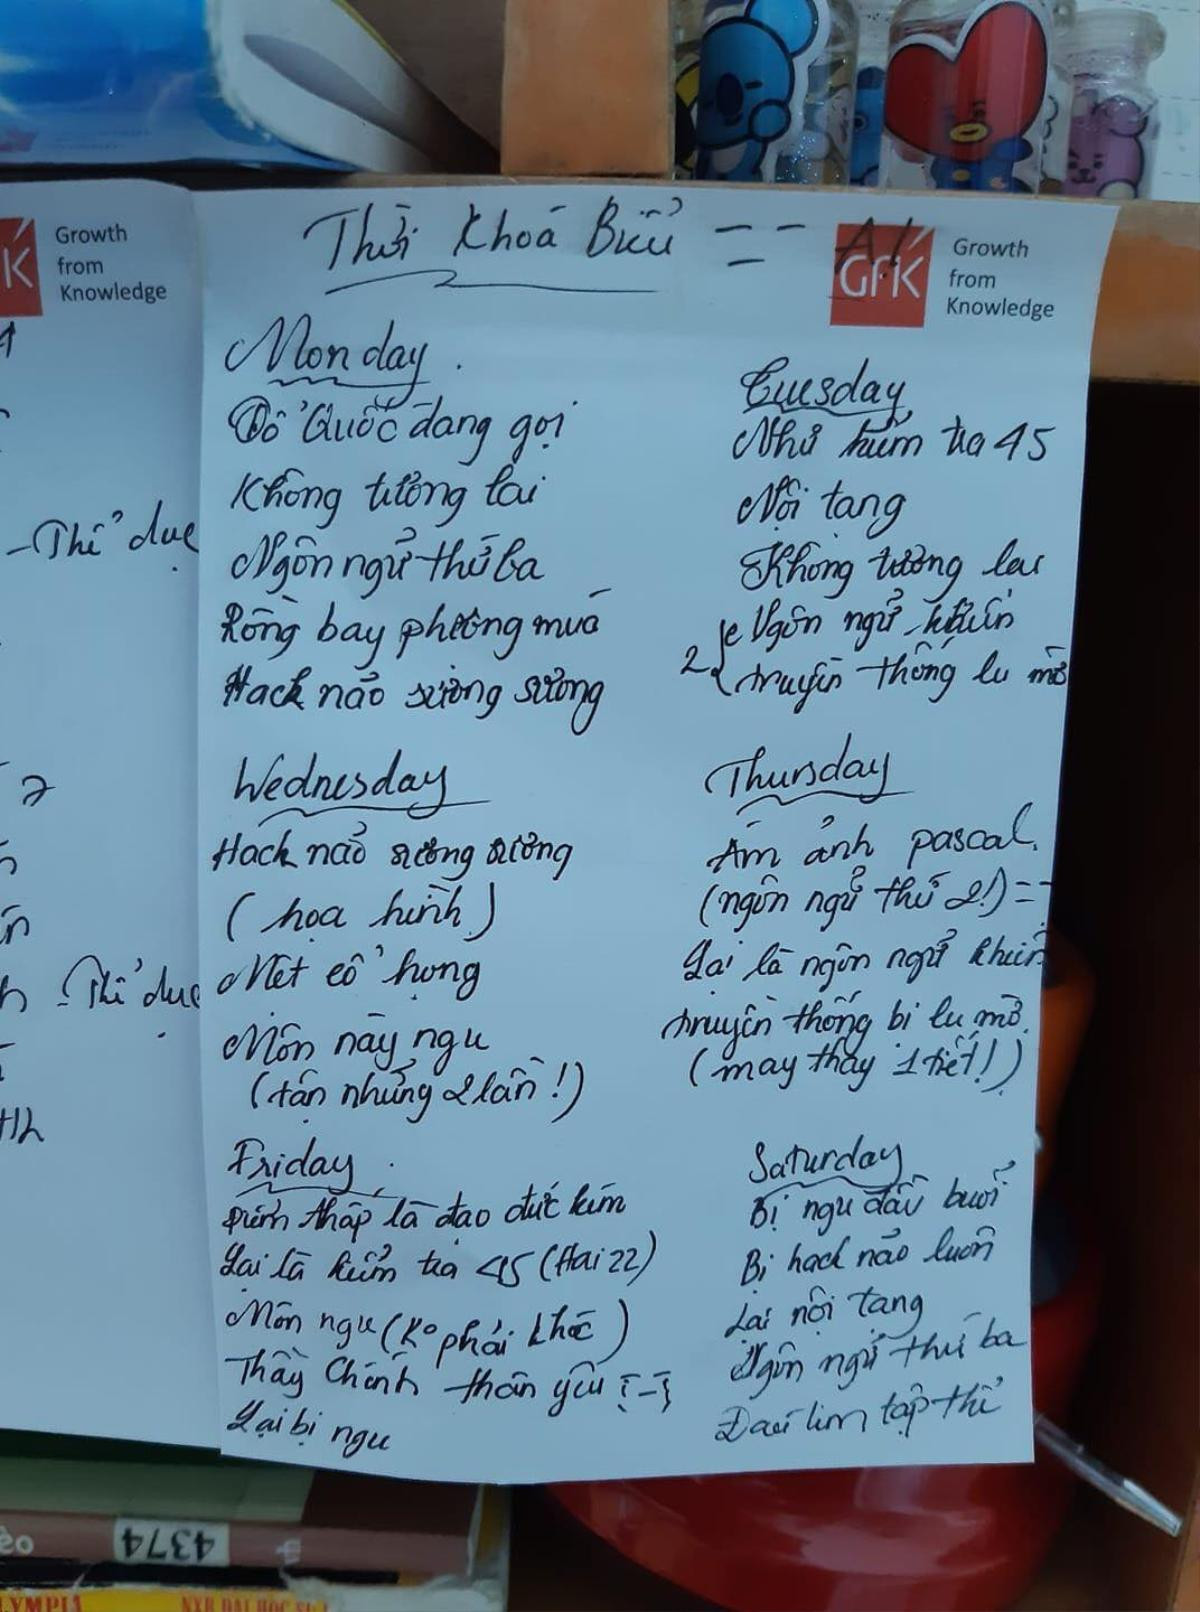 Thời Khoá Biểu
GFK
Growth
from
Knowledge
Growth
from
Knowledge
Monday
Tổ Quốc đang gọi
Không tương lai
Ngôn ngữ thứ ba
Rồng bay phượng múa
Hack não sương sương
Tuesday
Như kiểm tra 45
Nội tạng
Không tương lai
Ngôn ngữ khiến
2 truyền thống lu mờ
- Thể dục
Wednesday
Hack não sương sương
(họa hình)
Mệt cổ họng
Môn này ngu
(tận những 2 lần!)
Thursday
Ám ảnh pascal
(ngôn ngữ thứ 2!)
Lại là ngôn ngữ khiến
truyền thống bị lu mờ
(may thay 1 tiết!)
- Thể dục
Friday
Điểm thấp là đạo đức kém
Lại là kiểm tra 45 (Hai 22)
Môn ngu (Ko phải khóc)
Thầy Chính thân yêu
Lại bị ngu
Saturday
Bị ngu đầu buổi
Bị hack não luôn
Lại nội tạng
Ngôn ngữ thứ ba
tập thể
4374